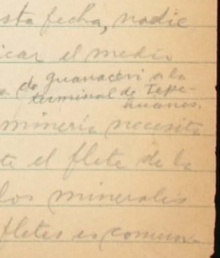 sta fecha, nadie
icar el medio
a de guanacevi a la
terminal de Tepe-
huanes.
minería necesita
te el flete de la
los minerales
fletes es comun